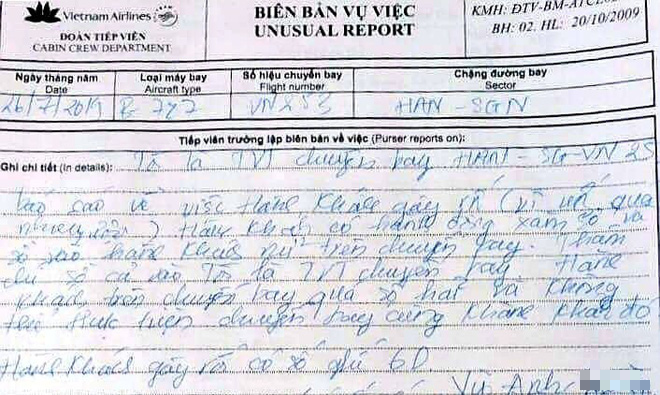 Vietnam Airlines
ĐOÀN TIẾP VIÊN
CABIN CREW DEPARTMENT
BIÊN BẢN VỤ VIỆC
UNUSUAL REPORT
KMH: ĐTV-BM-ATCL
BH: 02. HL: 20/10/2009
Ngày tháng năm
Date
Loại máy bay
Aircraft type
Số hiệu chuyến bay
Flight number
Chặng đường bay
Sector
26/7/2019 B 787 VN 253 HAN - SGN
Tiếp viên trưởng lập biên bản về việc (Purser reports on):
Ghi chi tiết (In details): Tôi là TVT chuyến bay HAN - SG - VN 25
báo cáo về việc Hành Khách gây rối (vì uống quá
nhiều rượu) Hành Khách có hành động xàm sỡ và
sờ vào hành khách nữ trên chuyến bay. Thậm
chí sờ cả vào Tôi là TVT chuyến bay. Hành
Khách trên chuyến bay quá sợ hãi và không
thể thực hiện chuyến bay cùng Hành Khách đó
Hành Khách gây rối có số ghế 6D.
Vũ Anh